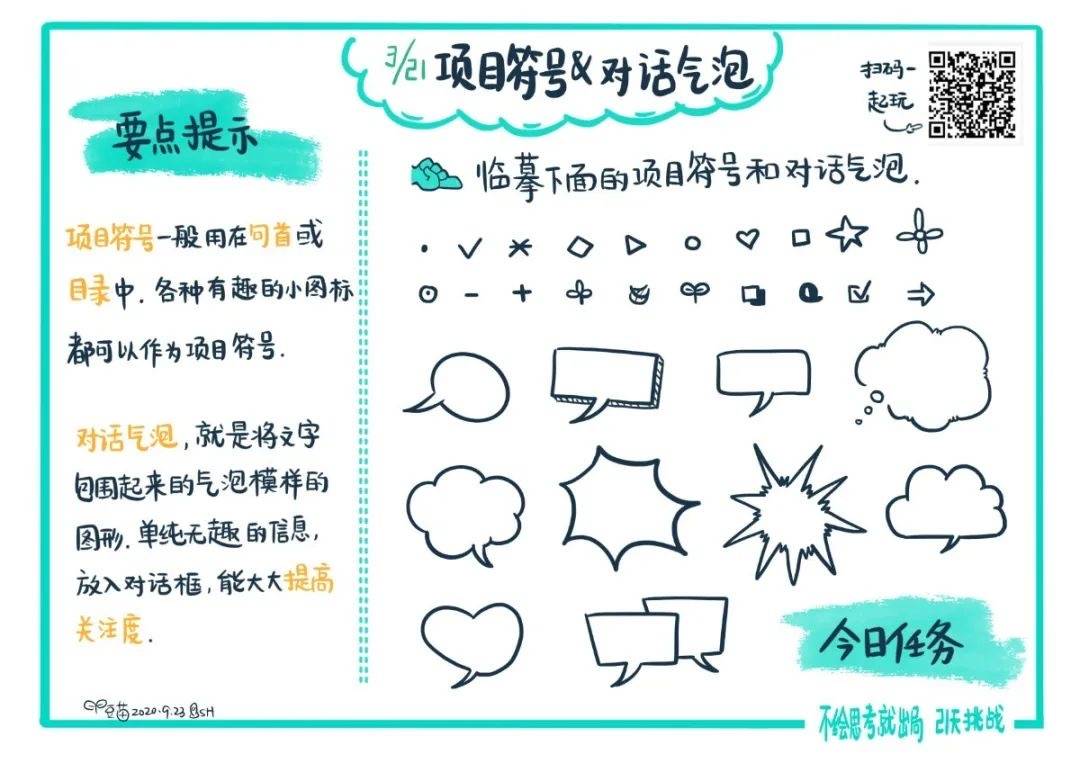 3/21 项目符号&对话气泡
扫码一
起玩
要点提示
项目符号一般用在句首或
目录中.各种有趣的小图标
都可以作为项目符号.
对话气泡,就是将文字
包围起来的气泡模样的
图形.单纯无趣的信息,
放入对话框,能大大提高
关注度.
临摹下面的项目符号和对话气泡.
今日任务
豆苗2020.9.23 SH
不绘思考就出局 21天挑战